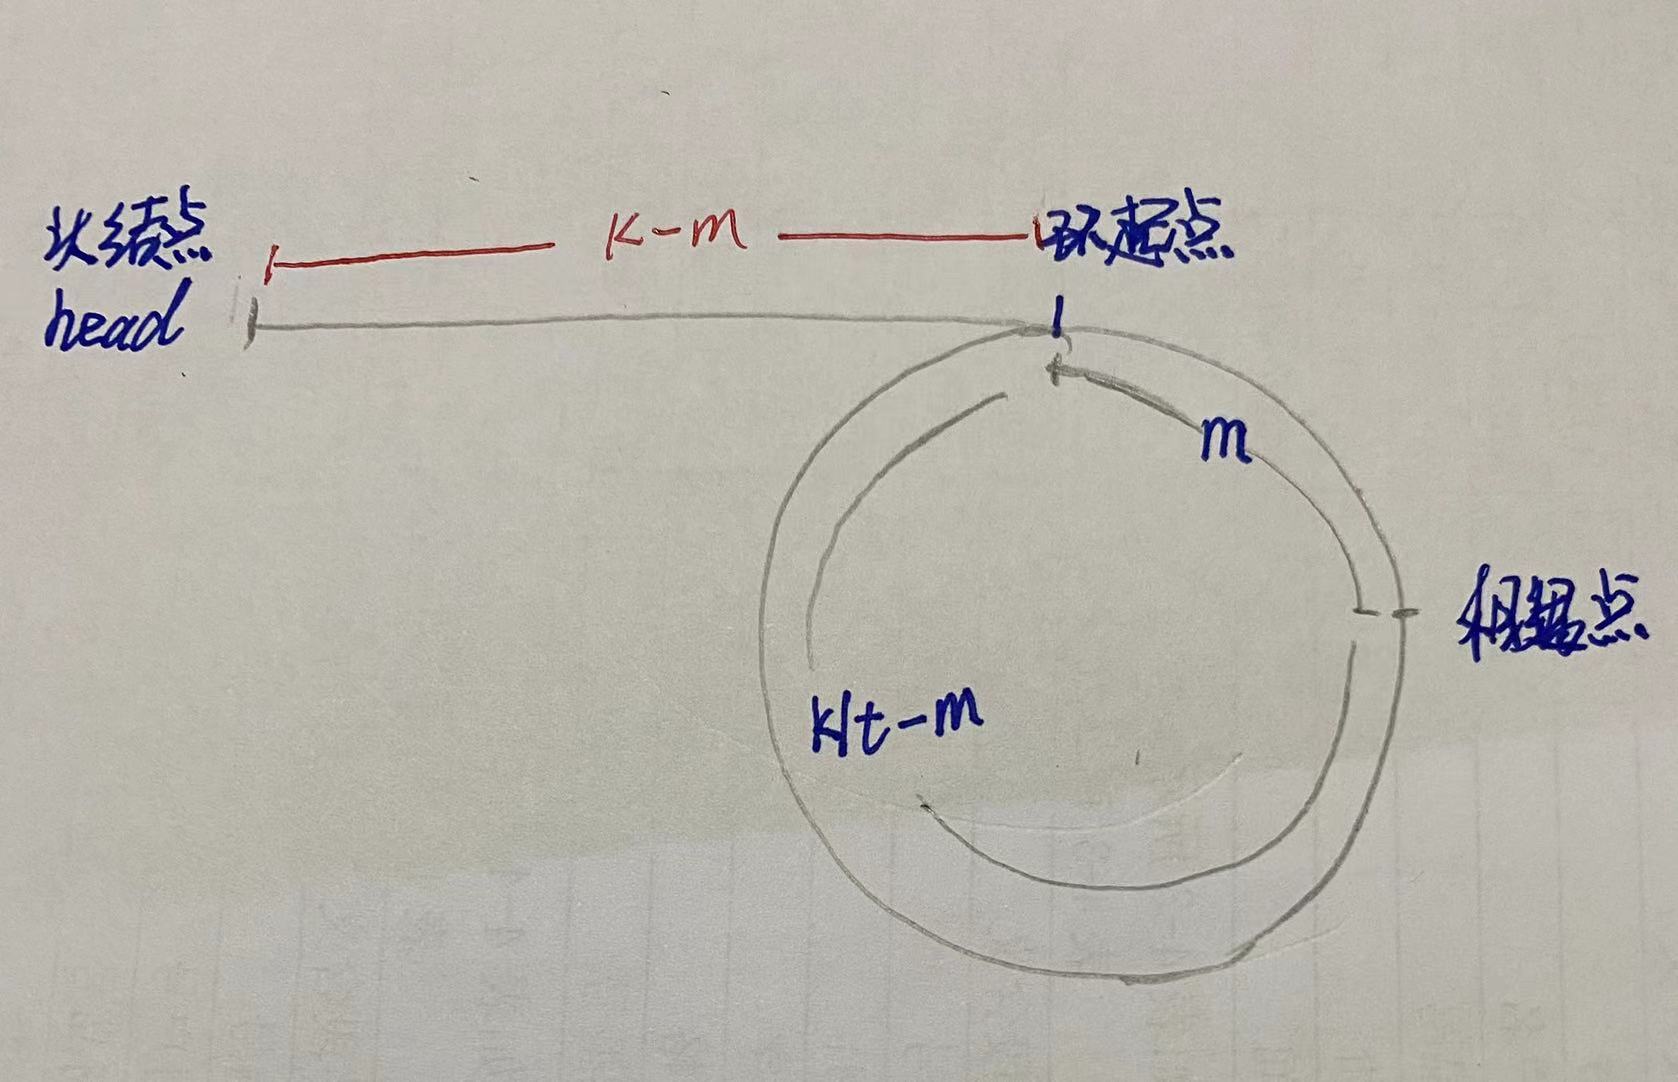 头结点
head
K-m
环起点
m
相遇点
K/t-m